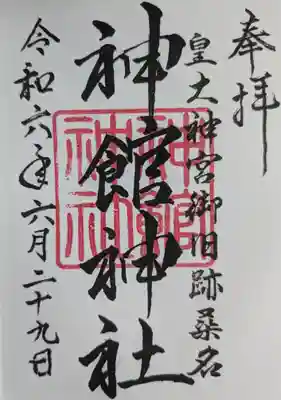 奉拝
皇大神宮御旧跡桑名
神館神社
令和六年六月二十九日
神館
神社